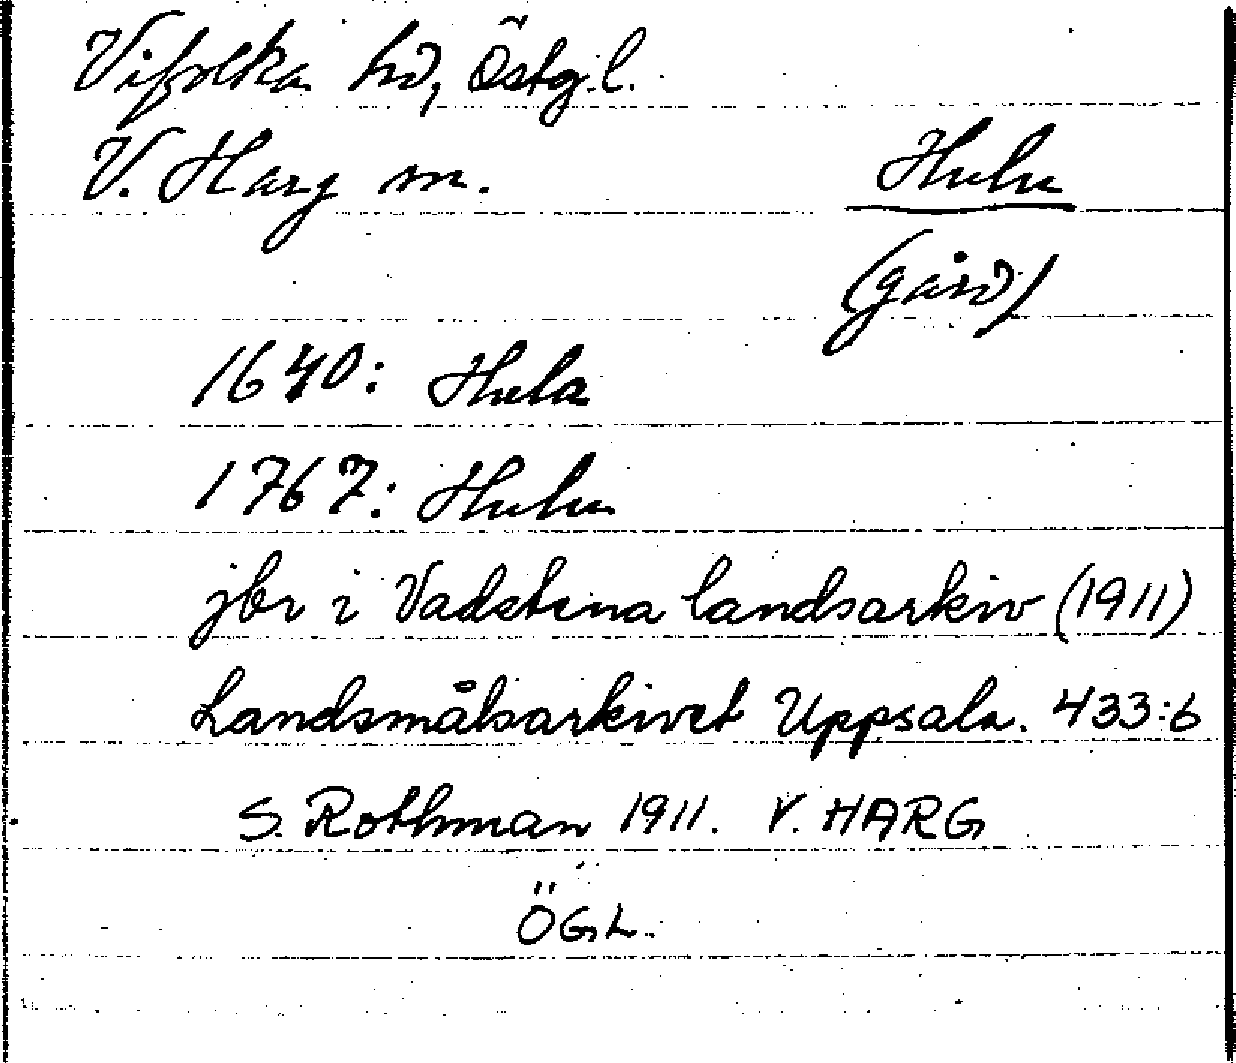 Vifolka hd, Östg.l.
V. Harg sn. Hulu
(gård)
1640: Hula
1767: Hulu
jbr i Vadstena landsarkiv (1911)
Landsmålsarkivet Uppsala. 433:6
S. Rothman 1911. V. HARG
ÖGL.